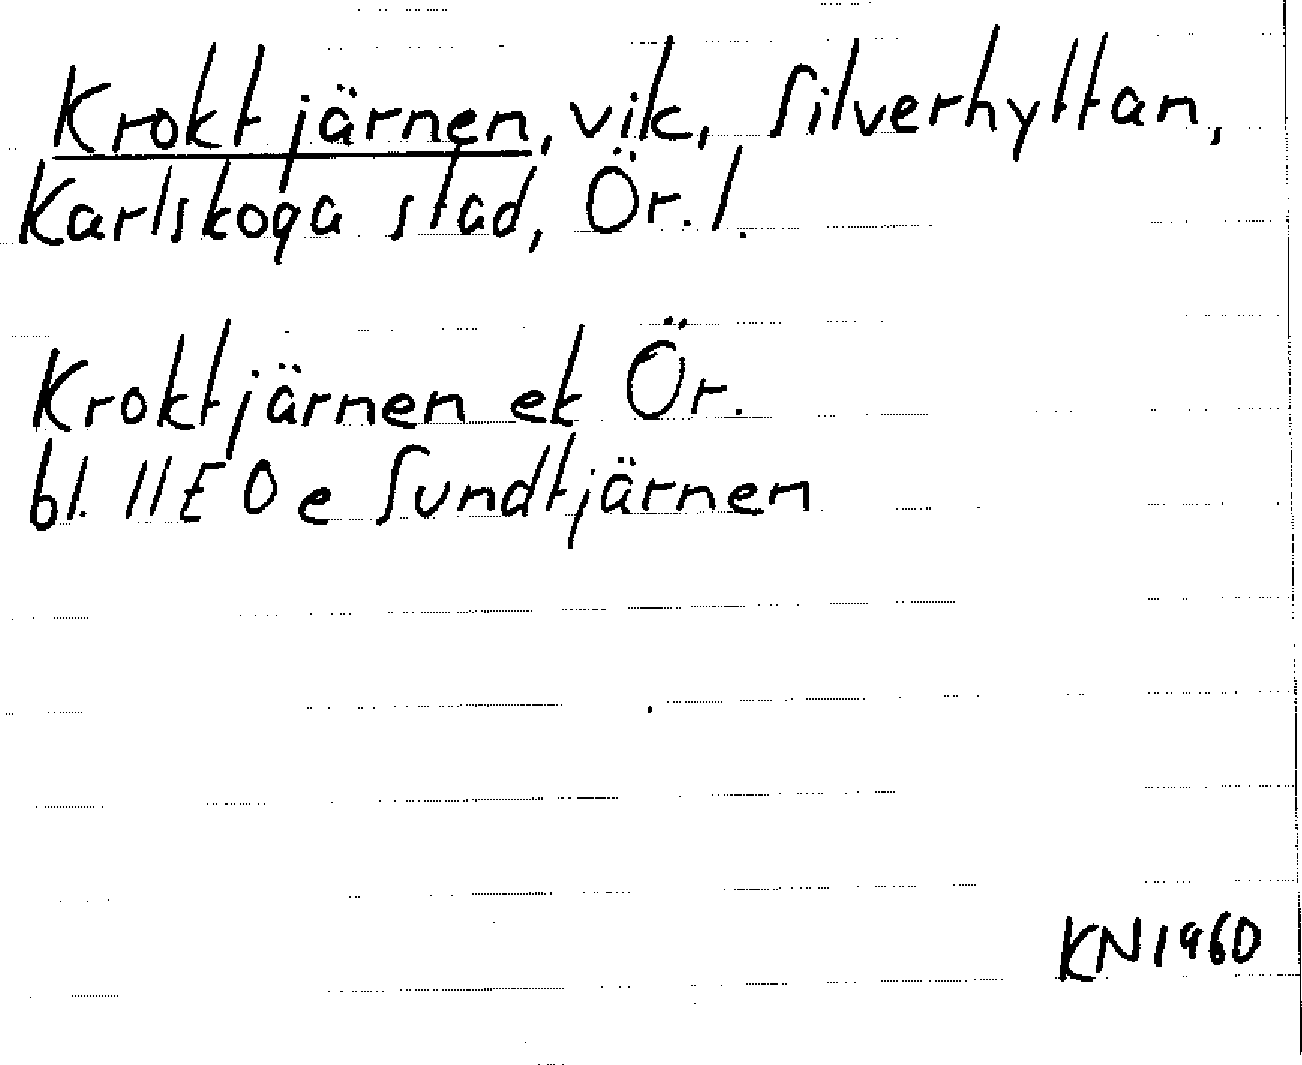 Kroktjärnen, vik, Silverhyttan,
Karlskoga stad, Ör. l.
Kroktjärnen ek Ör.
bl. 11E 0e Sundtjärnen
KN 1960